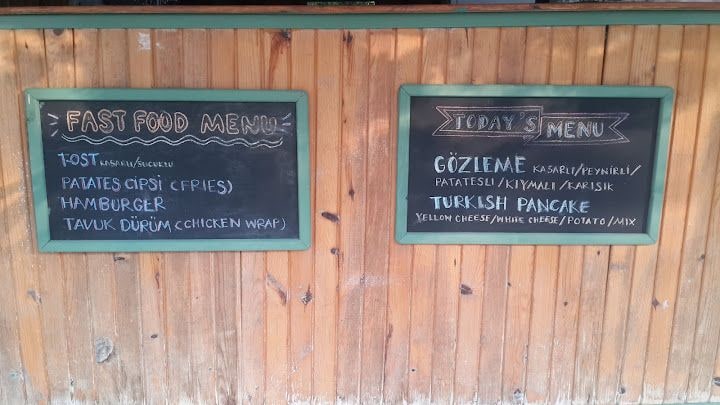 FAST FOOD MENU
TOST KAŞARLI/SUCUKLU
PATATES CİPSİ (FRIES)
HAMBURGER
TAVUK DÜRÜM (CHICKEN WRAP)
TODAY'S MENU
GÖZLEME KAŞARLI/PEYNİRLİ/
PATATESLİ/KIYMALI/KARIŞIK
TURKISH PANCAKE
YELLOW CHEESE/WHITE CHEESE/POTATO/MIX